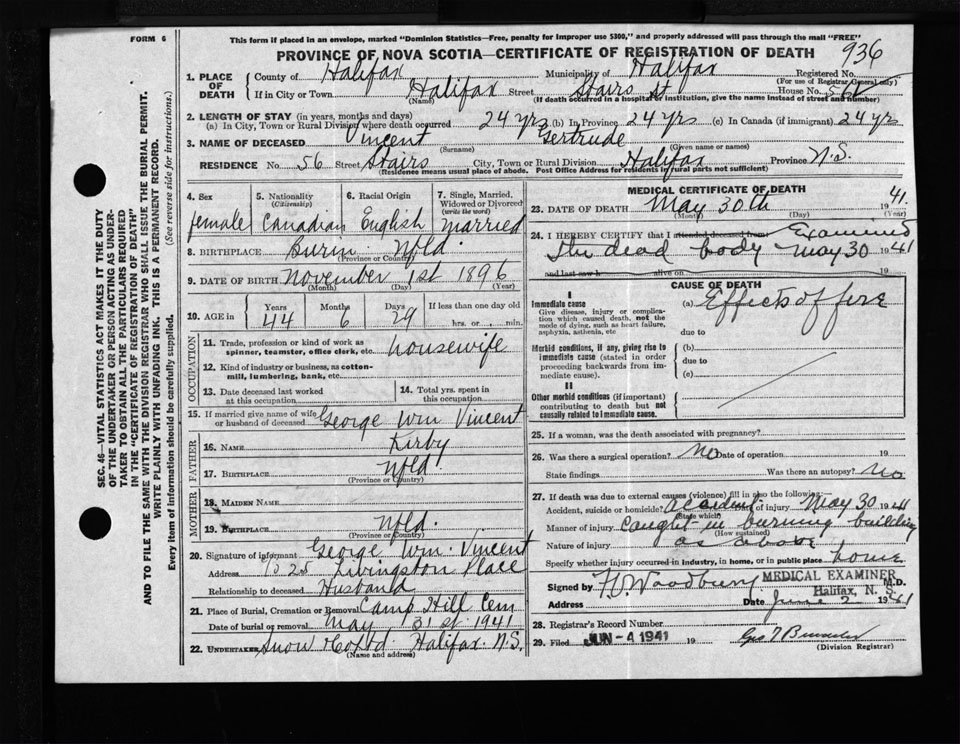 FORM 6
This form if placed in an envelope, marked "Dominion Statistics—Free, penalty for improper use $300," and properly addressed will pass through the mail "FREE"
PROVINCE OF NOVA SCOTIA—CERTIFICATE OF REGISTRATION OF DEATH
936
1. PLACE OF DEATH
County of Halifax Municipality of Halifax Registered No.
(For use of Registrar General only)
If in City or Town Halifax Street Stairs St House No. 56
(Name) (If death occurred in a hospital or institution, give the name instead of street and number)
2. LENGTH OF STAY (in years, months and days)
(a) In City, Town or Rural Division where death occurred 24 yrs (b) In Province 24 yrs (c) In Canada (if immigrant) 24 yrs
3. NAME OF DECEASED Vincent Gertrude
(Surname) (Given name or names)
RESIDENCE No. 56 Street Stairs City, Town or Rural Division Halifax Province N.S.
(Residence means usual place of abode. Post Office Address for residents in rural parts not sufficient)
4. Sex
female
5. Nationality (Citizenship)
Canadian
6. Racial Origin
English
7. Single, Married, Widowed or Divorced (write the word)
Married
8. BIRTHPLACE Burin Nfld.
(Province or Country)
9. DATE OF BIRTH November 1st 1896
(Month) (Day) (Year)
10. AGE in Years 44 Months 6 Days 29 If less than one day old hrs. or min.
OCCUPATION
11. Trade, profession or kind of work as spinner, teamster, office clerk, etc. housewife
12. Kind of industry or business, as cotton-mill, lumbering, bank, etc.
13. Date deceased last worked at this occupation
14. Total yrs. spent in this occupation
15. If married give name of wife or husband of deceased George Wm Vincent
FATHER
16. NAME Kirby
17. BIRTHPLACE Nfld
(Province or Country)
MOTHER
18. MAIDEN NAME
19. BIRTHPLACE Nfld.
(Province or Country)
20. Signature of informant George Wm. Vincent
Address Livingston Place
Relationship to deceased Husband
21. Place of Burial, Cremation or Removal Camp Hill Cem
Date of burial or removal May 31st 1941
22. UNDERTAKER Snow & Co Ltd. Halifax. N.S.
(Name and address)
MEDICAL CERTIFICATE OF DEATH
23. DATE OF DEATH May 30th 1941
(Month) (Day) (Year)
24. I HEREBY CERTIFY that I attended deceased from Examined
the dead body May 30 1941
and last saw h alive on 19
CAUSE OF DEATH
I
Immediate cause
Give disease, injury or complication which caused death, not the mode of dying, such as heart failure, asphyxia, asthenia, etc
(a) Effects of fire
due to
Morbid conditions, if any, giving rise to immediate cause (stated in order proceeding backwards from immediate cause).
(b)
due to
(c)
II
Other morbid conditions (if important) contributing to death but not causally related to immediate cause.
25. If a woman, was the death associated with pregnancy?
26. Was there a surgical operation? No Date of operation 19
State findings Was there an autopsy? No
27. If death was due to external causes (violence) fill in also the following:
Accident, suicide or homicide? Accident Date of injury May 30 1941
(State which)
Manner of injury Caught in burning building
(How sustained)
Nature of injury as above
Specify whether injury occurred in industry, in home, or in public place home
Signed by H. Woodbury M.D.
MEDICAL EXAMINER
Halifax, N. S.
Address Date June 2 1941
28. Registrar's Record Number
29. Filed JUN - 4 1941 19
(Division Registrar)
SEC. 46—VITAL STATISTICS ACT MAKES IT THE DUTY
OF THE UNDERTAKER OR PERSON ACTING AS UNDER-
TAKER TO OBTAIN ALL THE PARTICULARS REQUIRED
IN THE "CERTIFICATE OF REGISTRATION OF DEATH"
AND TO FILE THE SAME WITH THE DIVISION REGISTRAR WHO SHALL ISSUE THE BURIAL PERMIT.
WRITE PLAINLY WITH UNFADING INK. THIS IS A PERMANENT RECORD.
Every item of information should be carefully supplied. (See reverse side for instructions.)